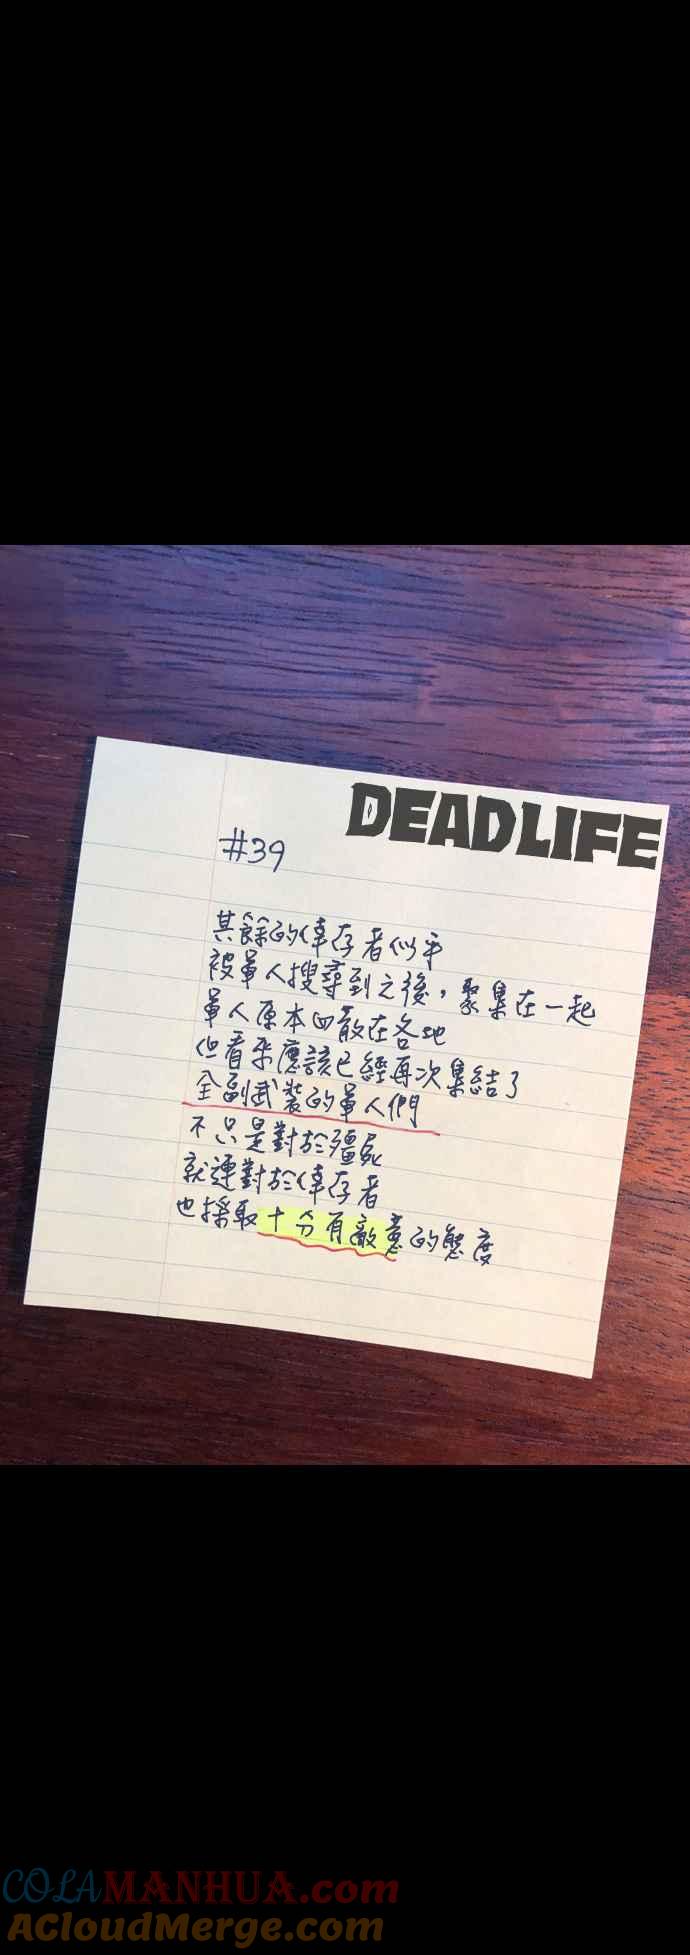 DEADLIFE
#39
其餘的倖存者似乎
被軍人搜尋到之後，聚集在一起
軍人原本四散在各地
但看來應該已經再次集結了
全副武裝的軍人們
不只是對於殭屍
就連對於倖存者
也採取十分有敵意的態度
COLAMANHUA.com
ACloudMerge.com